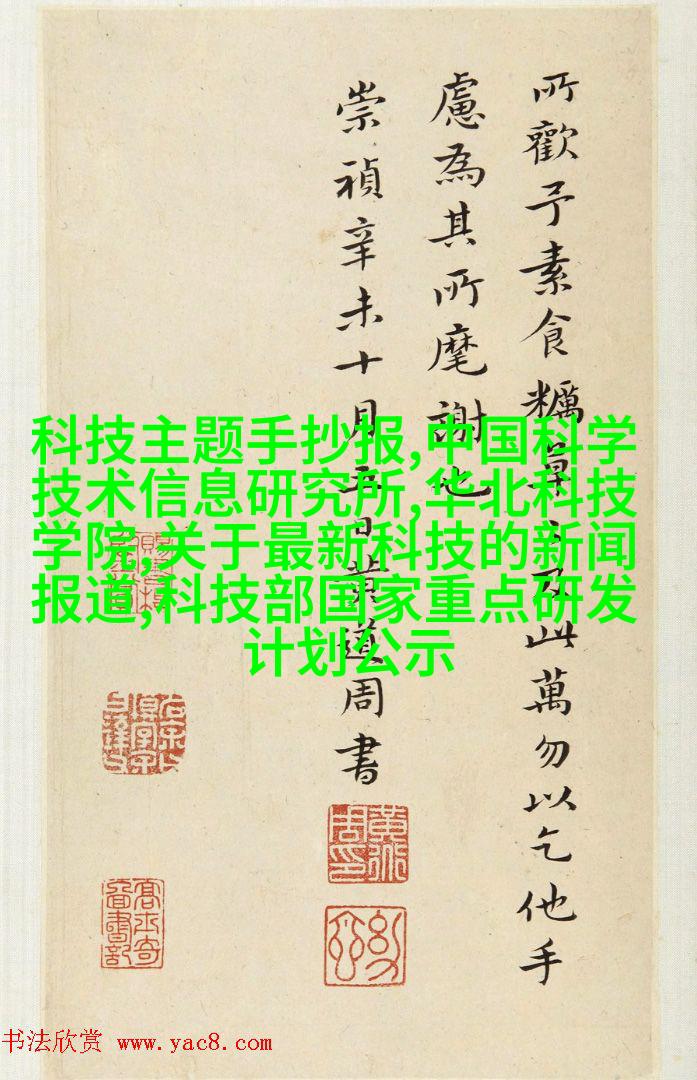 所歡予素食糲及此萬勿以乞他手
慮為其所麾謝也
崇禎辛未十月五日黃道周書
科技主题手抄报,中国科学
技术信息研究所,华北科技
学院,关于最新科技的新闻
报道,科技部国家重点研发
计划公示
高士奇圖書記
书法欣赏 www.yac8.com